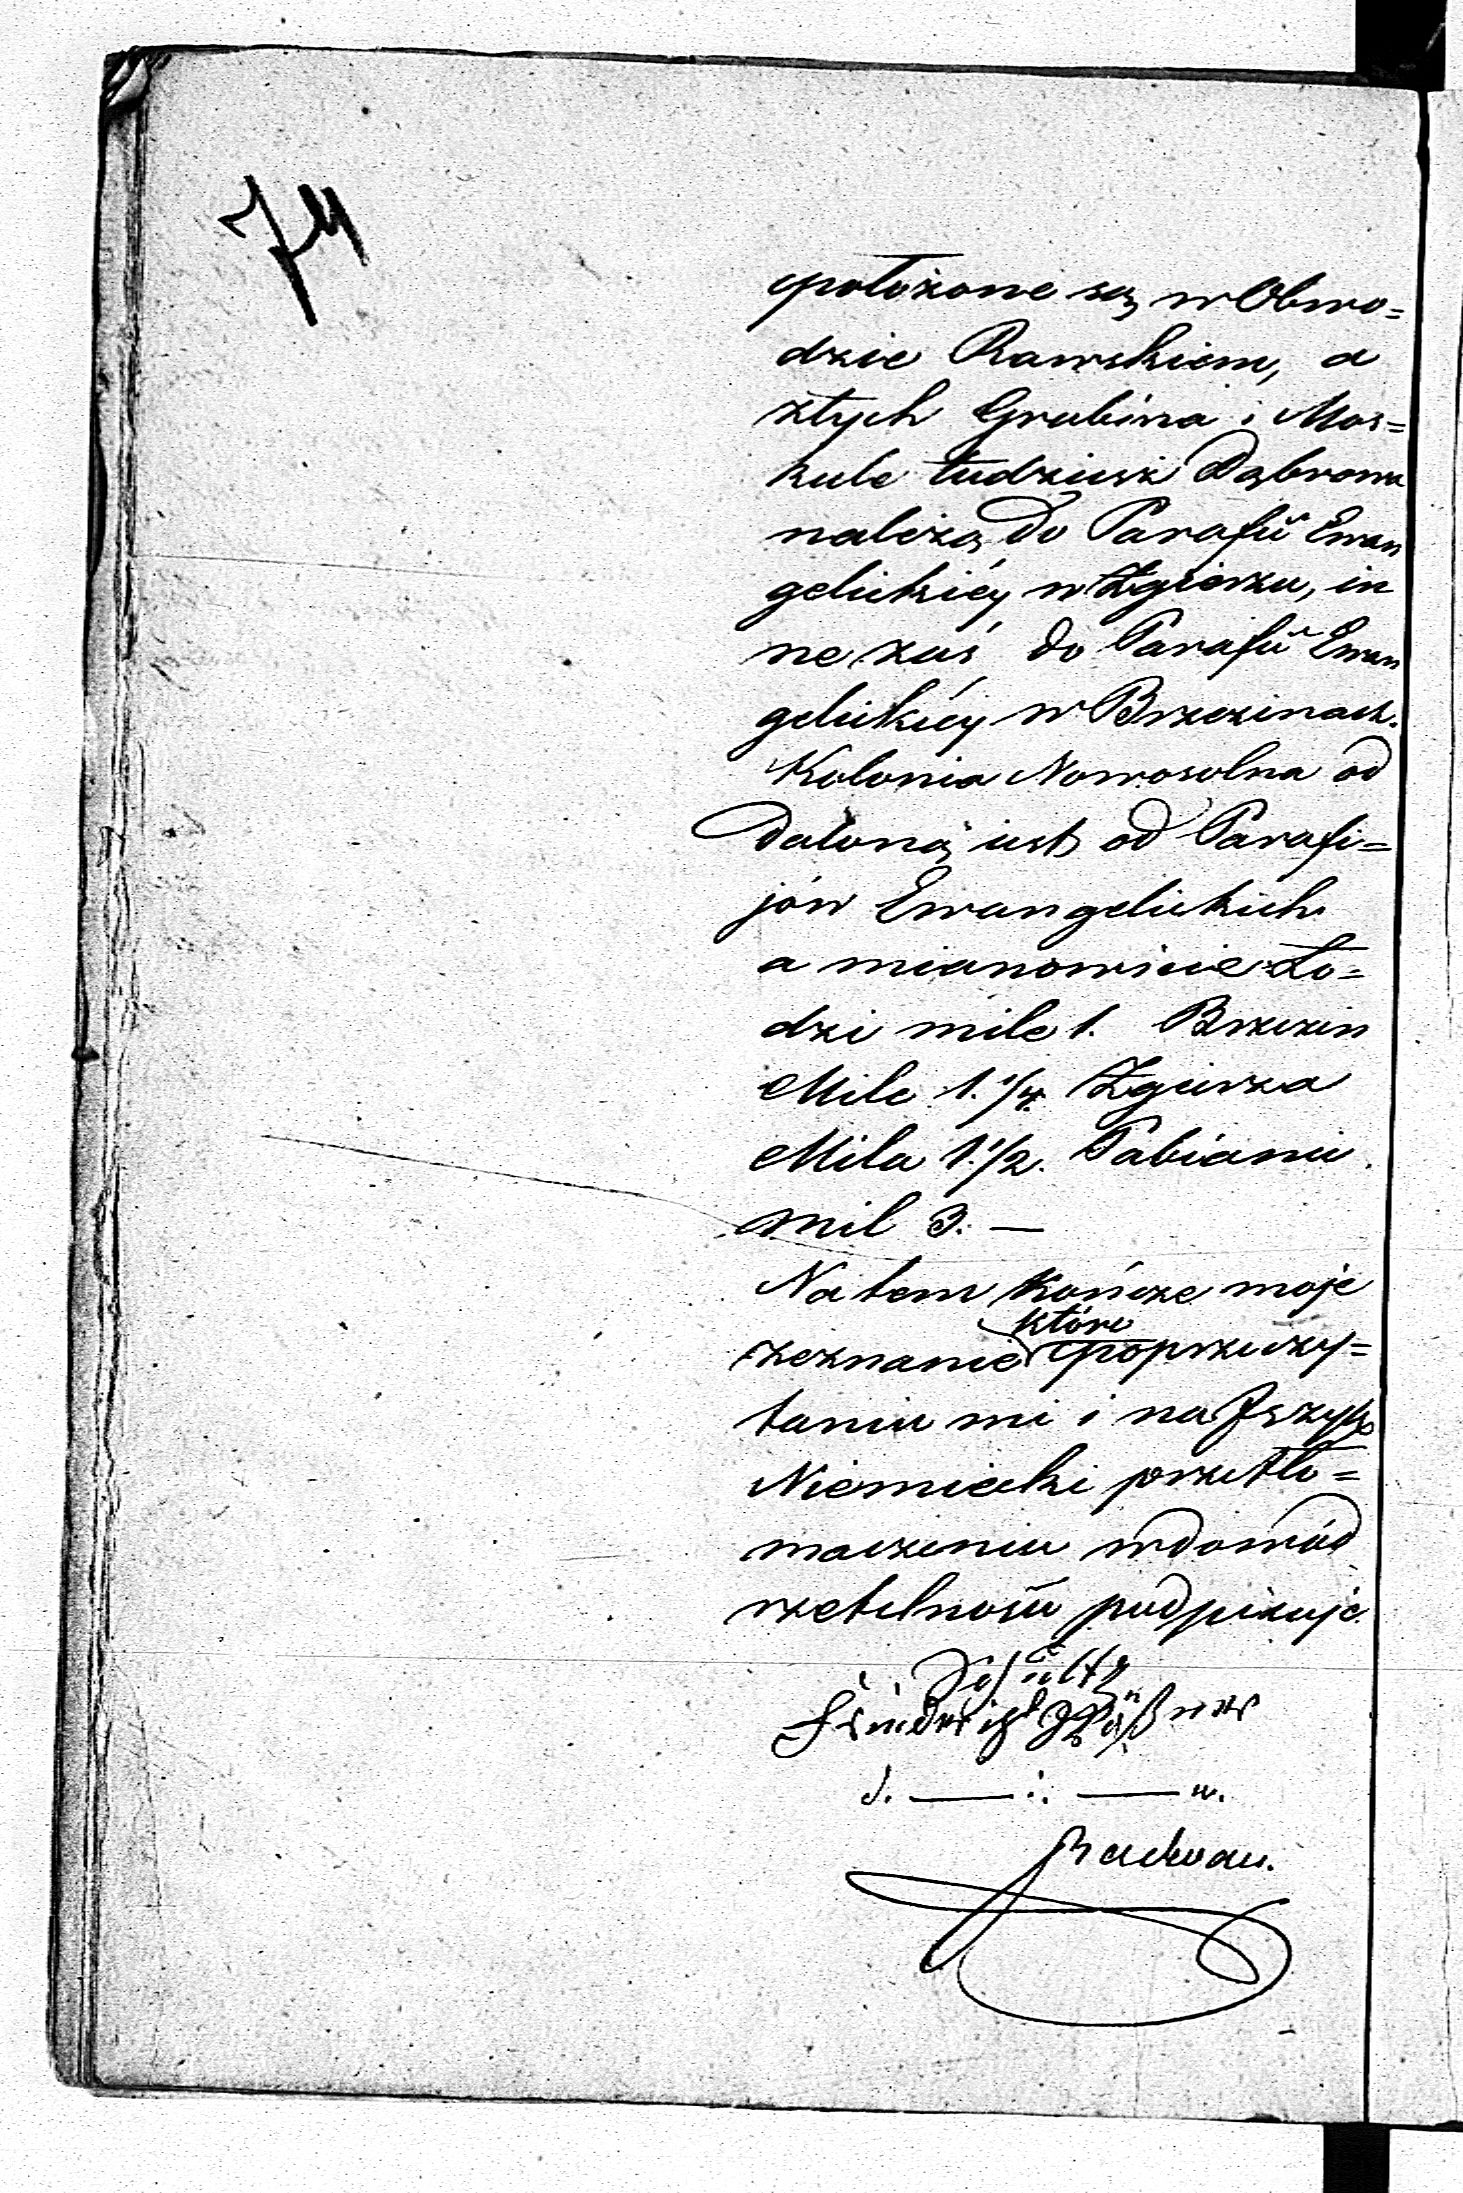 74
położone są w Obwo=
dzie Rawskiem, a
z tych Grabina i Mos=
kule tudzież Dąbrowa
należą do Parafii Ewan
gelickiéy w Zgierzu, in
ne zaś do Parafii Ewan
gelickiéy w Brzezinach.
Kolonia Nowosolna od
daloną iest od Parafi=
jów Ewangelickich
a mianowicie Ło=
dzi mile 1. Brzezin
Mile 1. 1/4. Zgierza
Mila 1. 1/2. Pabianic
mil 3. —
Na tem kończe moje
które
zeznanie po przeczy=
taniu mi i na Język
Niemiecki przetło=
maczeniu w dowód
rzetelności podpisuję.
Schultz
Friedrich
Radwan.